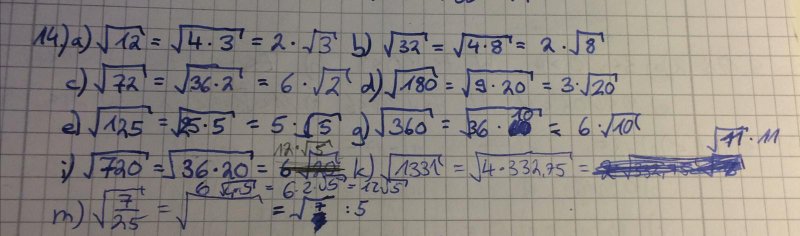 14) a) √12 = √4·3 = 2·√3 b) √32 = √4·8 = 2·√8
c) √72 = √36·2 = 6·√2 d) √180 = √9·20 = 3·√20
e) √125 = √25·5 = 5·√5 g) √360 = √36·10 = 6·√10
i) √720 = √36·20 = 12·√5 k) √1331 = √4·332,75 = √11·11
6√4·5 = 6·2·√5 = 12√5
m) √7/25 = √ = √7 : 5